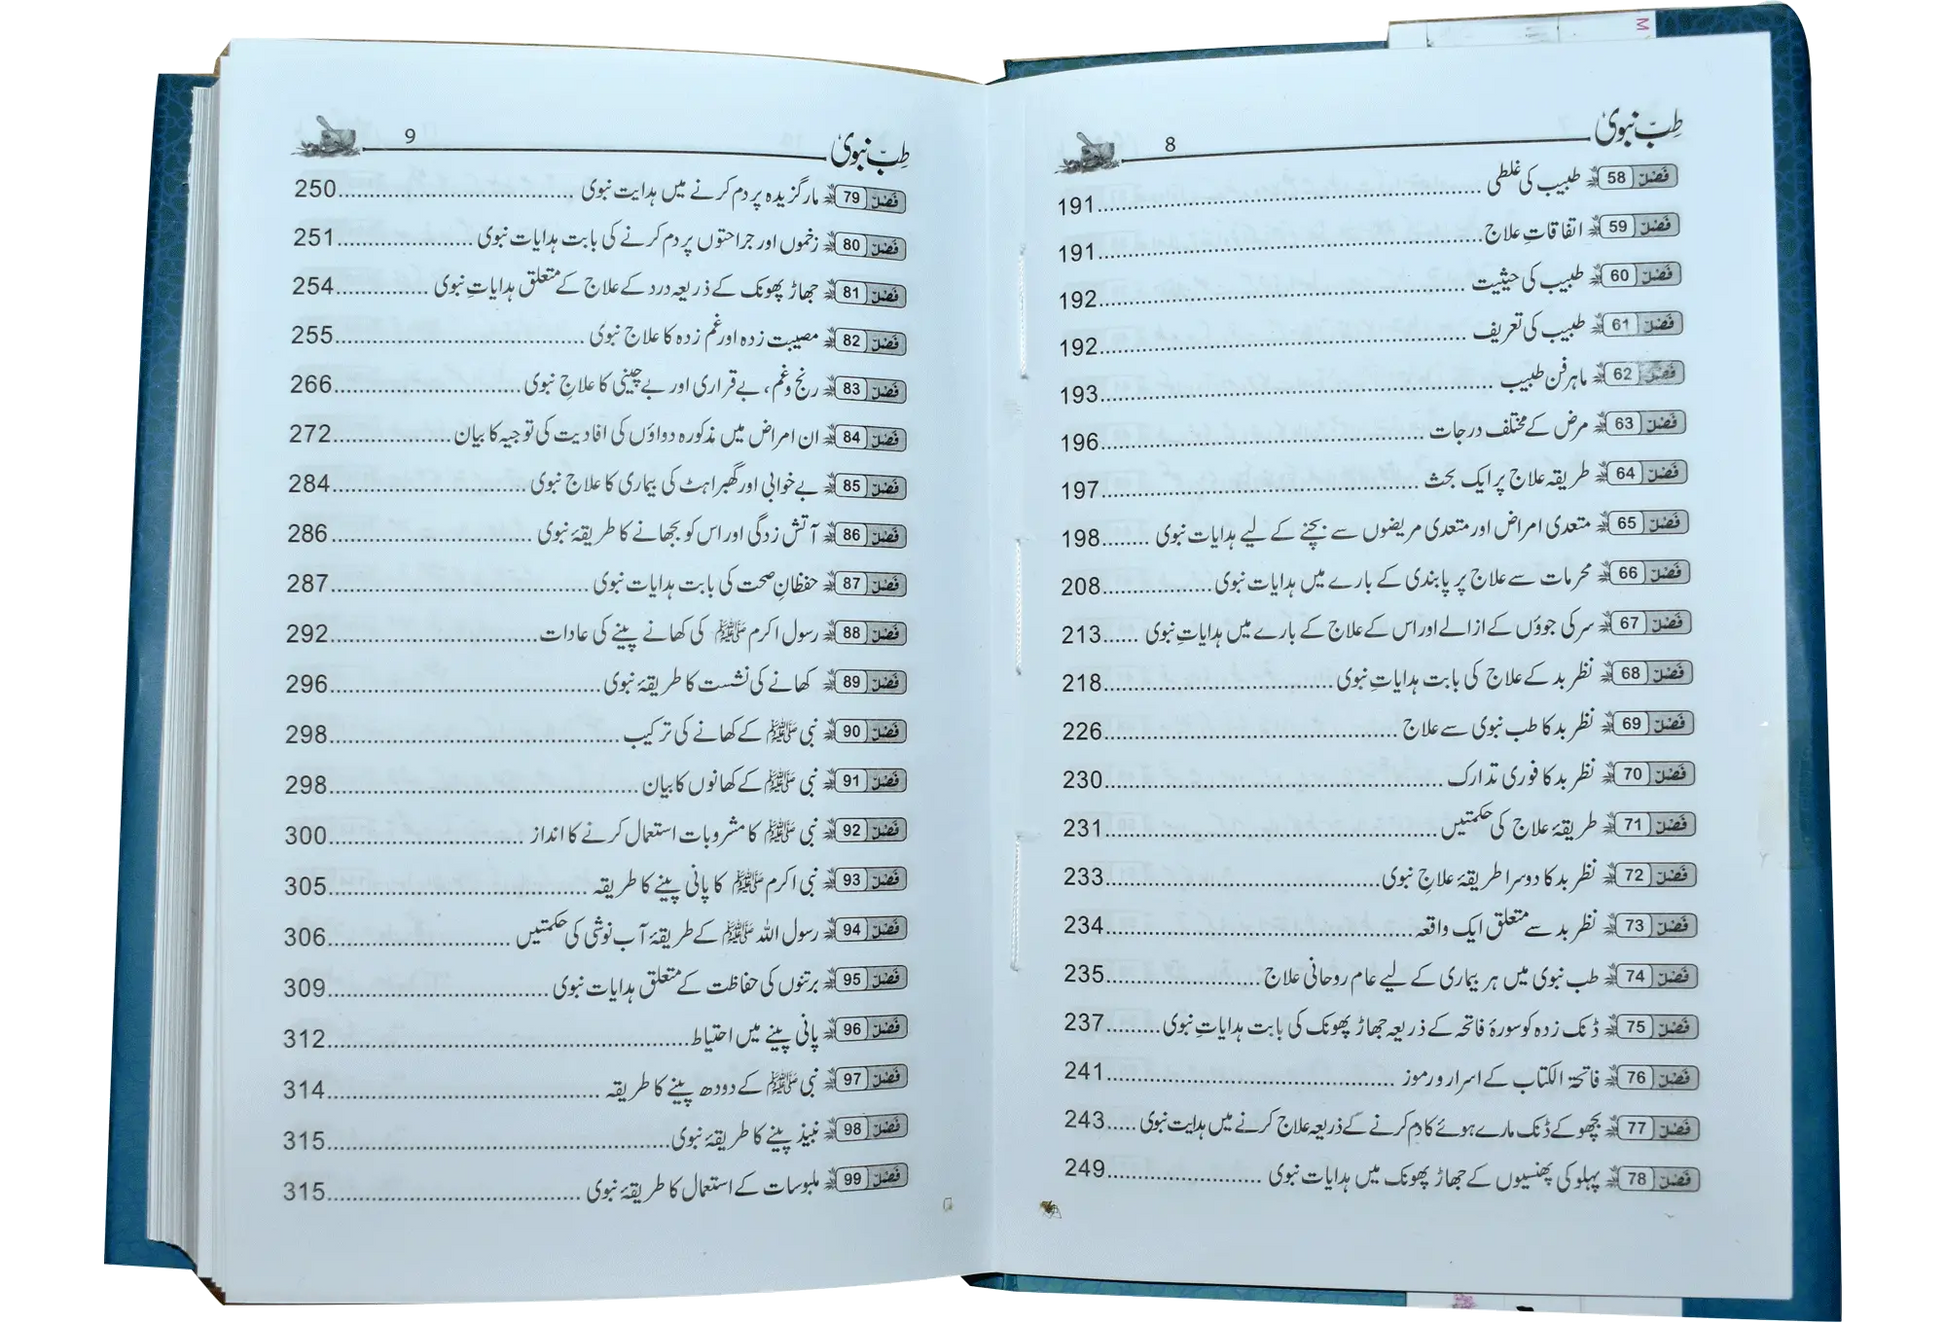 طبِّ نبویؐ 8
فصل 58 طبیب کی غلطی 191
فصل 59 اتفاقاتِ علاج 191
فصل 60 طبیب کی حیثیت 192
فصل 61 طبیب کی تعریف 192
فصل 62 ماہر فن طبیب 193
فصل 63 مرض کے مختلف درجات 196
فصل 64 طریقہ علاج پر ایک بحث 197
فصل 65 متعدی امراض اور متعدی مریضوں سے بچنے کے لیے ہدایات نبوی 198
فصل 66 محرمات سے علاج پر پابندی کے بارے میں ہدایات نبوی 208
فصل 67 سر کی جوؤں کے ازالے اور اس کے علاج کے بارے میں ہدایاتِ نبوی 213
فصل 68 نظر بد کے علاج کی بابت ہدایاتِ نبوی 218
فصل 69 نظر بد کا طب نبوی سے علاج 226
فصل 70 نظر بد کا فوری تدارک 230
فصل 71 طریقۂ علاج کی حکمتیں 231
فصل 72 نظر بد کا دوسرا طریقۂ علاجِ نبوی 233
فصل 73 نظر بد سے متعلق ایک واقعہ 234
فصل 74 طب نبوی میں ہر بیماری کے لیے عام روحانی علاج 235
فصل 75 ڈنک زدہ کو سورۂ فاتحہ کے ذریعہ جھاڑ پھونک کی بابت ہدایاتِ نبوی 237
فصل 76 فاتحۃ الکتاب کے اسرار و رموز 241
فصل 77 بچھو کے ڈنک مارے ہوئے کا دم کرنے کے ذریعہ علاج کرنے میں ہدایت نبوی 243
فصل 78 پہلو کی پھنسیوں کے جھاڑ پھونک میں ہدایات نبوی 249
طبِّ نبویؐ 9
فصل 79 مار گزیدہ پر دم کرنے میں ہدایت نبوی 250
فصل 80 زخموں اور جراحتوں پر دم کرنے کی بابت ہدایات نبوی 251
فصل 81 جھاڑ پھونک کے ذریعہ درد کے علاج کے متعلق ہدایاتِ نبوی 254
فصل 82 مصیبت زدہ اور غم زدہ کا علاج نبوی 255
فصل 83 رنج و غم، بے قراری اور بے چینی کا علاجِ نبوی 266
فصل 84 ان امراض میں مذکورہ دواؤں کی افادیت کی توجیہ کا بیان 272
فصل 85 بے خوابی اور گھبراہٹ کی بیماری کا علاج نبوی 284
فصل 86 آتش زدگی اور اس کو بجھانے کا طریقۂ نبوی 286
فصل 87 حفظانِ صحت کی بابت ہدایات نبوی 287
فصل 88 رسول اکرم ﷺ کی کھانے پینے کی عادات 292
فصل 89 کھانے کی نشست کا طریقۂ نبوی 296
فصل 90 نبی ﷺ کے کھانے کی ترکیب 298
فصل 91 نبی ﷺ کے کھانوں کا بیان 298
فصل 92 نبی ﷺ کا مشروبات استعمال کرنے کا انداز 300
فصل 93 نبی اکرم ﷺ کا پانی پینے کا طریقہ 305
فصل 94 رسول اللہ ﷺ کے طریقۂ آب نوشی کی حکمتیں 306
فصل 95 برتنوں کی حفاظت کے متعلق ہدایات نبوی 309
فصل 96 پانی پینے میں احتیاط 312
فصل 97 نبی ﷺ کے دودھ پینے کا طریقہ 314
فصل 98 نبیذ پینے کا طریقۂ نبوی 315
فصل 99 ملبوسات کے استعمال کا طریقۂ نبوی 315